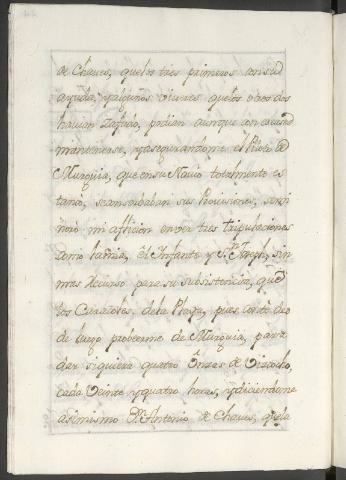 de Chaves, que los tres primeros con su
ayuda, y algunos viveres que los otros dos
havian zafado, podian aunque con escasez
mantenerse, y asegurandome el Piloto de
Murguia, que en su Navio totalmente es
tavan, se conservaban sus Provisiones,
no mi aflicion en ver tres tripulaciones
como la mia, el Infante y Sn. Joseph, sin
mas recurso para su subsistencia, que
los Caracoles, de la Playa, pues
de luego proveerme de Murguia, para
dar siquiera quatro Onzas de Viscocho,
cada veinte y quatro horas, y diciendome
asimismo Dn. Antonio de Chaves, que la